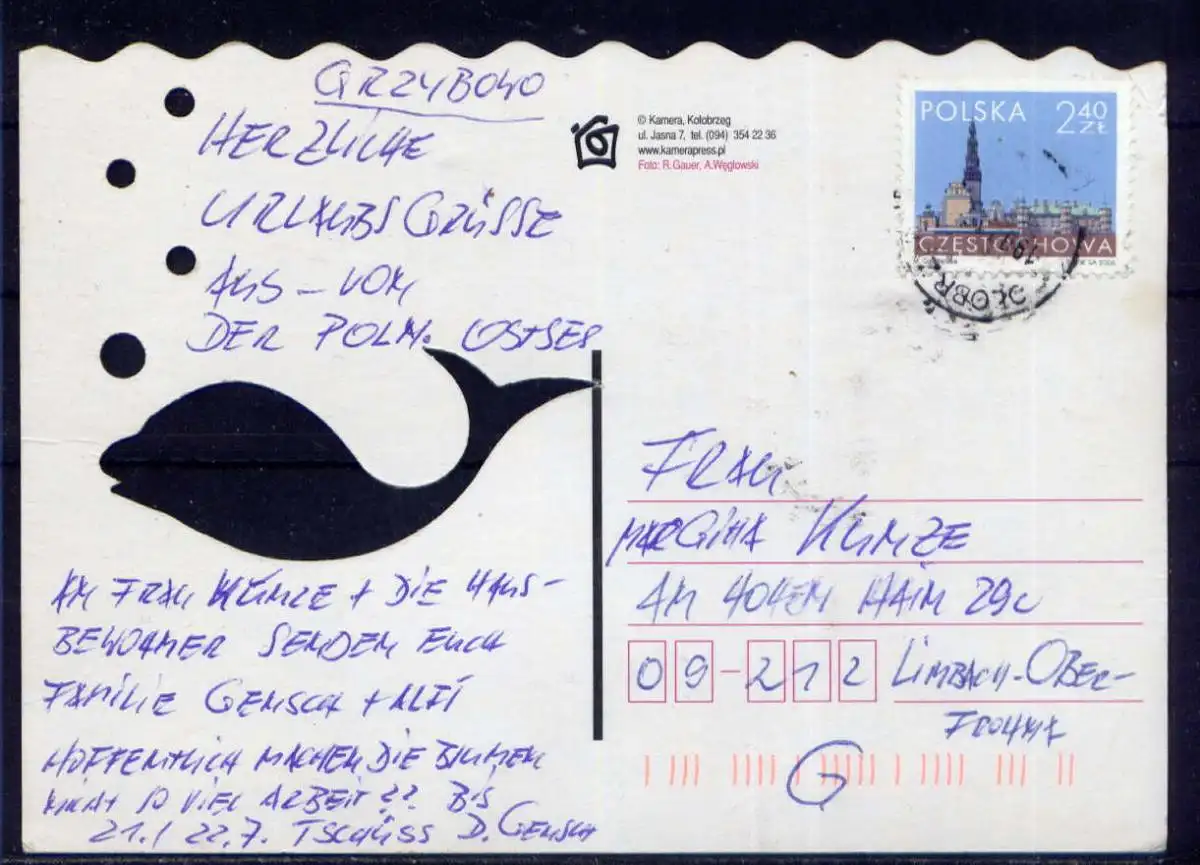 GRZYBOWO
HERZLICHE
URLAUBSGRÜSSE
AUS – VON
DER POLN. OSTSEE
AN FRAU KUNZE + DIE HAUS-
BEWOHNER SENDEN EUCH
FAMILIE GENSCH +
HOFFENTLICH MACHEN DIE BLUMEN
NICHT SO VIEL ARBEIT?? BIS
21./22.7. TSCHÜSS D. GENSCH
© Kamera, Kołobrzeg
ul. Jasna 7, tel. (094) 354 22 36
www.kamerapress.pl
Foto: R. Gauer, A. Węglowski
POLSKA 2 40 ZŁ
CZĘSTOCHOWA
FRAU
KUNZE
AM HOHEN HAIN 29c
09-212 LIMBACH-OBER-
FROHNA
G